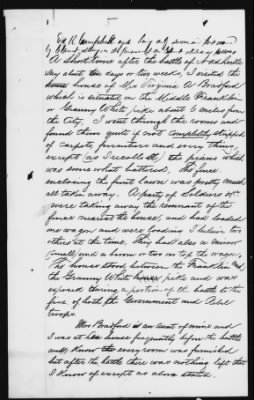 Ed R Campbell aged
A short time after the battle of Nashville
say about ten days or two weeks, I visited the
house of Mrs Virginia A Bradford
which is situated on the Middle Franklin
or Granny White pike about 5 miles from
the City. I went through the rooms and
found them quite if not completely stripped
of carpets, furniture and every thing,
except (as I recollect) the piano which
was some what battered. The fence
enclosing the front lawn was pretty much
all taken away. A party of Soldiers
were taking away the remnant of the
fence nearest the house, and had loaded
one wagon and were loading I believe two
others at the time. They had also a mirror
(small) and a broom or two on top the wagon.
The house stood between the Franklin and
the Granny White pike and was
exposed during a portion of the battle to the
fire of both the Government and Rebel
troops.
Mrs Bradford is an aunt of mine and
I was at her house frequently before the battle
and know that every room was furnished
but after the battle there was nothing left that
I know of except as above stated.